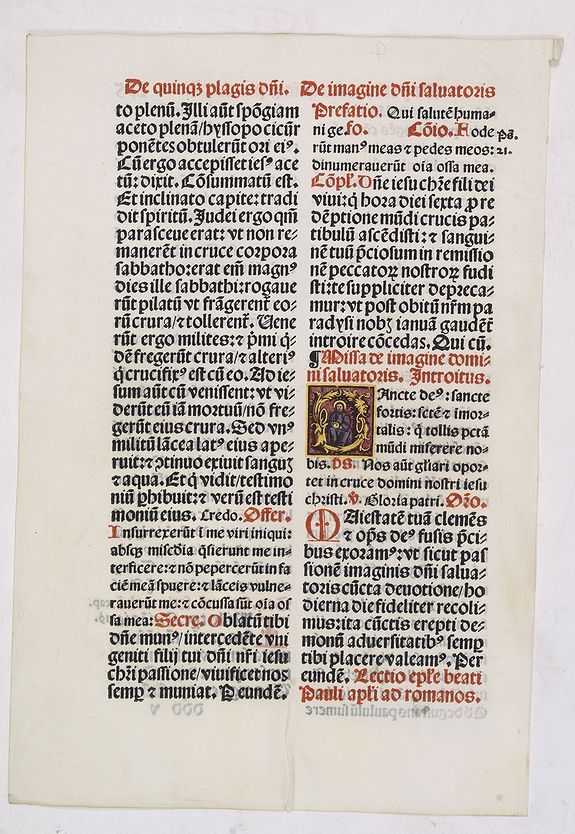 De quinqꝫ plagis dñi.
to plenū. Illi aūt spōgiam
aceto plenā/hyssopo cicūr
ponētes obtulerūt ori eiꝰ.
Cū ergo accepisset iesꝰ ace
tū: dixit. Cōsummatū est.
Et inclinato capite: tradi
dit spiritū. Judei ergo qm̄
parasceue erat: vt non re⸗
manerēt in cruce corpora
sabbatho: erat em̄ magnꝰ
dies ille sabbathi: rogaue
rūt pilatū vt frāgerent̄ eo⸗
rū crura/⁊ tollerent̄. Uene
rūt ergo milites: ⁊ p̄mi q̄⸗
dē fregerūt crura/⁊ alteriꝰ
q̇ crucifixꝰ est cū eo. Ad ie⸗
sum aūt cū venissent: vt vi⸗
derūt eū iā mortuū/nō fre⸗
gerūt eius crura. Sed vnꝰ
militū lācea latꝰ eiꝰ ape⸗
ruit: ⁊ ꝯtinuo exiuit sanguꝭ
⁊ aqua. Et q̇ vidit/testimo
niū ꝑhibuit: ⁊ verū est testi
moniū eius. Credo. Offer.
Insurrexerūt ī me viri iniqui:
absqꝫ miscḋia q̄sierunt me in⸗
terficere: ⁊ nō pepercerūt in fa
ciē meā spuere: ⁊ lāceis vulne⸗
rauerūt me: ⁊ cōcussa sūt oīa os
sa mea: Secre. Oblatū tibi
dn̄e munꝰ/intercedēte vni
geniti filij tui dn̄i nr̄i iesu
chr̄i passione/viuificet nos
semꝑ ⁊ muniat. P eundē.
De imagine dñi saluatoris
Prefatio. Qui salutē huma⸗
ni ge. fo. Cōio. Fode
rūt manꝰ meas ⁊ pedes meos:
dinumerauerūt oīa ossa mea.
pā.
21.
Cōpł. Dn̄e iesu chr̄e fili dei
viui: q̇ hora diei sexta ꝓ re
dēptione mūdi crucis pa⸗
tibulū ascēdisti: ⁊ sangui⸗
nē tuū p̄ciosum in remissio
nē peccatoꝝ nostroꝝ fudi
sti: te suppliciter depreca⸗
mur: vt post obitū nr̄m pa
radysi nobꝭ ianuā gaudēt̄
introire cōcedas. Qui cū.
¶ Missa de imagine domi⸗
ni saluatoris. Introitus.
SAncte deꝰ: sancte
fortis: sct̄e ⁊ imor⸗
talis: q̇ tollis pctā
mūdi miserere no⸗
bis. ps. Nos aūt gl̄iari opor⸗
tet in cruce domini nostri iesu
christi. ꝟ. Gloria patri. Orō.
MAiestatē tuā clemēs
⁊ op̄s deꝰ fusis p̄ci⸗
bus exoramꝰ: vt sicut pas
sionē imaginis dn̄i salua⸗
toris cūcta deuotione/ho
dierna die fideliter recoli⸗
mus: ita cūctis erepti de⸗
monū aduersitatibꝰ semꝑ
tibi placere valeamꝰ. Per
eundē. Lectio ep̄łe beati
Pauli apłi ad romanos.